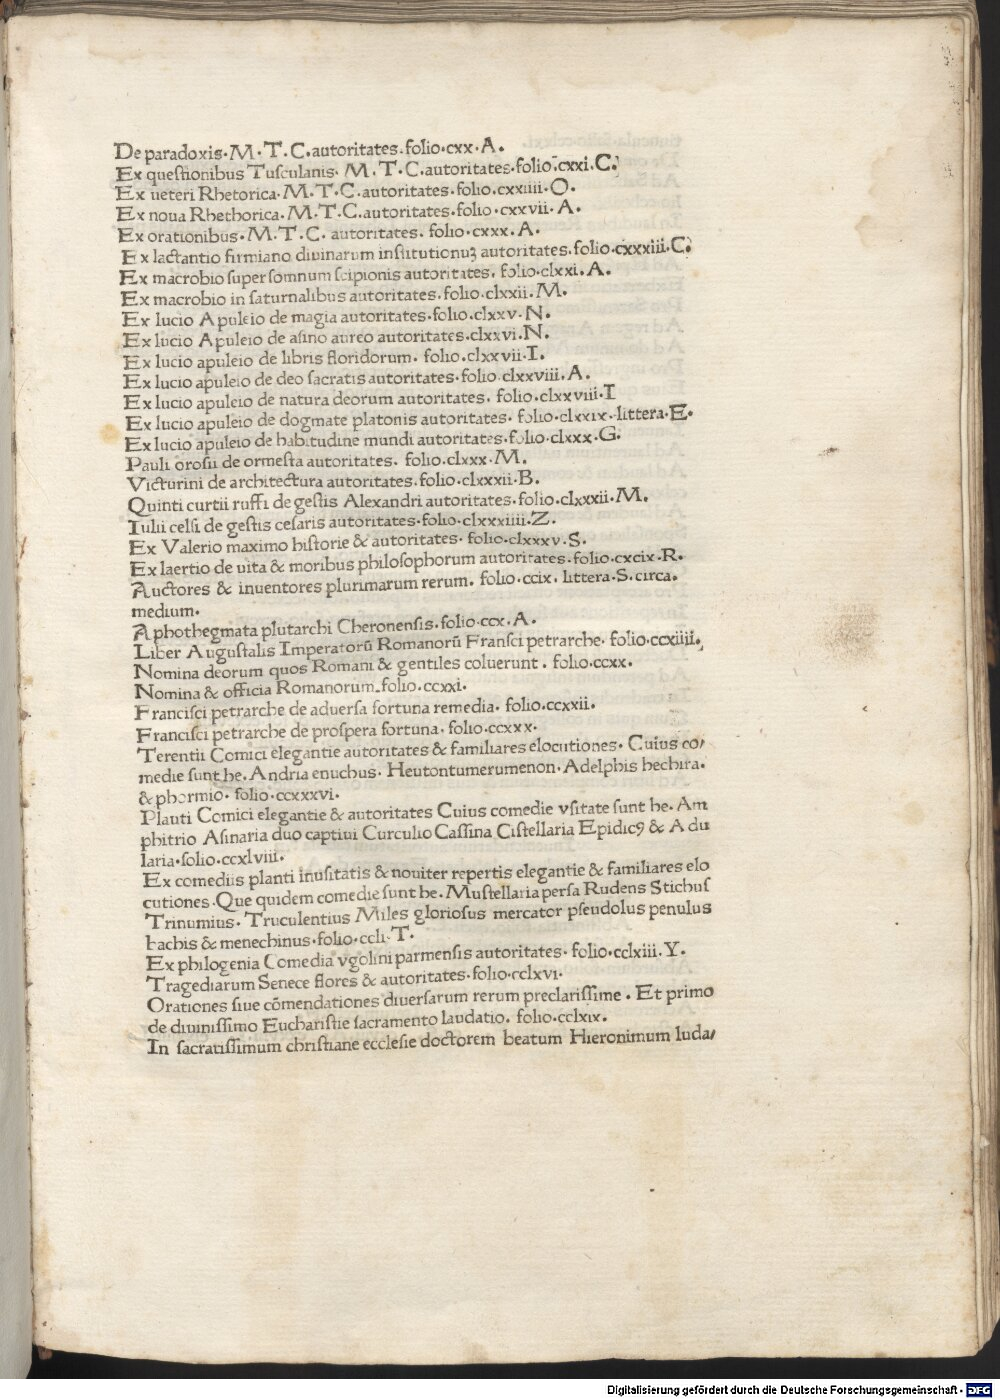 De paradoxis·M·T·C·autoritates·folio·cxx·A.
Ex questionibus Tusculanis· M·T·C·autoritates·folio·cxxi·C.
Ex ueteri Rhetorica·M·T·C·autoritates·folio·cxxiiii·O.
Ex noua Rhethorica·M·T·C·autoritates·folio·cxxvii·A.
Ex orationibus·M·T·C· autoritates. folio·cxxx·A.
Ex lactantio firmiano diuinarum institutionuȝ autoritates·folio·cxxxiii·C.
Ex macrobio super somnum scipionis autoritates. folio·clxxi·A.
Ex macrobio in saturnalibus autoritates·folio·clxxii·M.
Ex lucio Apuleio de magia autoritates·folio·clxxv·N.
Ex lucio Apuleio de asino aureo autoritates·clxxvi·N.
Ex lucio apuleio de libris floridorum. folio·clxxvii·I.
Ex lucio apuleio de deo sacratis autoritates·folio·clxxviii·A.
Ex lucio apuleio de natura deorum autoritates. folio·clxxviii·I
Ex lucio apuleio de dogmate platonis autoritates· folio·clxxix·littera·E.
Ex lucio apuleio de habitudine mundi autoritates·folio·clxxx·G.
Pauli orosii de ormesta autoritates. folio·clxxx·M.
Victurini de architectura autoritates·folio·clxxxii·B.
Quinti curtii ruffi de gestis Alexandri autoritates·folio·clxxxii·M.
Iulii celsi de gestis cesaris autoritates·folio·clxxxiiii·Z.
Ex Valerio maximo historie & autoritates· folio·clxxxv·S.
Ex laertio de uita & moribus philosophorum autoritates·folio·cxcix·R.
Auctores & inuentores plurimarum rerum. folio·ccix· littera·S·circa.
medium.
Aphothegmata plutarchi Cheronensis·folio·ccx·A.
Liber Augustalis Imperatorū Romanorū Fransci petrarche· folio·ccxiiii.
Nomina deorum quos Romani & gentiles coluerunt. folio·ccxx.
Nomina & officia Romanorum.folio·ccxxi.
Francisci petrarche de aduersa fortuna remedia. folio·ccxxii.
Francisci petrarche de prospera fortuna· folio·ccxxx.
Terentii Comici elegantie autoritates & familiares elocutiones· Cuius co/
medie sunt he. Andria enuchus· Heutontumerumenon·Adelphis hechira.
& phormio· folio·ccxxxvi.
Plauti Comici elegantie & autoritates Cuius comedie vsitate sunt he· Am
phitrio Asinaria duo captiui Curculio Cassina Cistellaria Epidicꝯ & Adu
laria·folio·ccxlviii.
Ex comediis planti inusitatis & nouiter repertis elegantie & familiares elo
cutiones·Que quidem comedie sunt he·Mustellaria persa Rudens Stichus
Trinumius· Truculentius Miles gloriosus mercator pseudolus penulus
bachis & menechinus·folio·ccli·T.
Ex philogenia Comedia vgolini parmensis autoritates· folio·cclxiii·Y.
Tragediarum Senece flores & autoritates·folio·cclxvi·
Orationes siue cōmendationes diuersarum rerum preclarissime. Et primo
de diuinissimo Eucharistie sacramento laudatio. folio·cclxix.
In sacratissimum christiane ecclesie doctorem beatum Hieronimum luda/
Digitalisierung gefördert durch die Deutsche Forschungsgemeinschaft · DFG